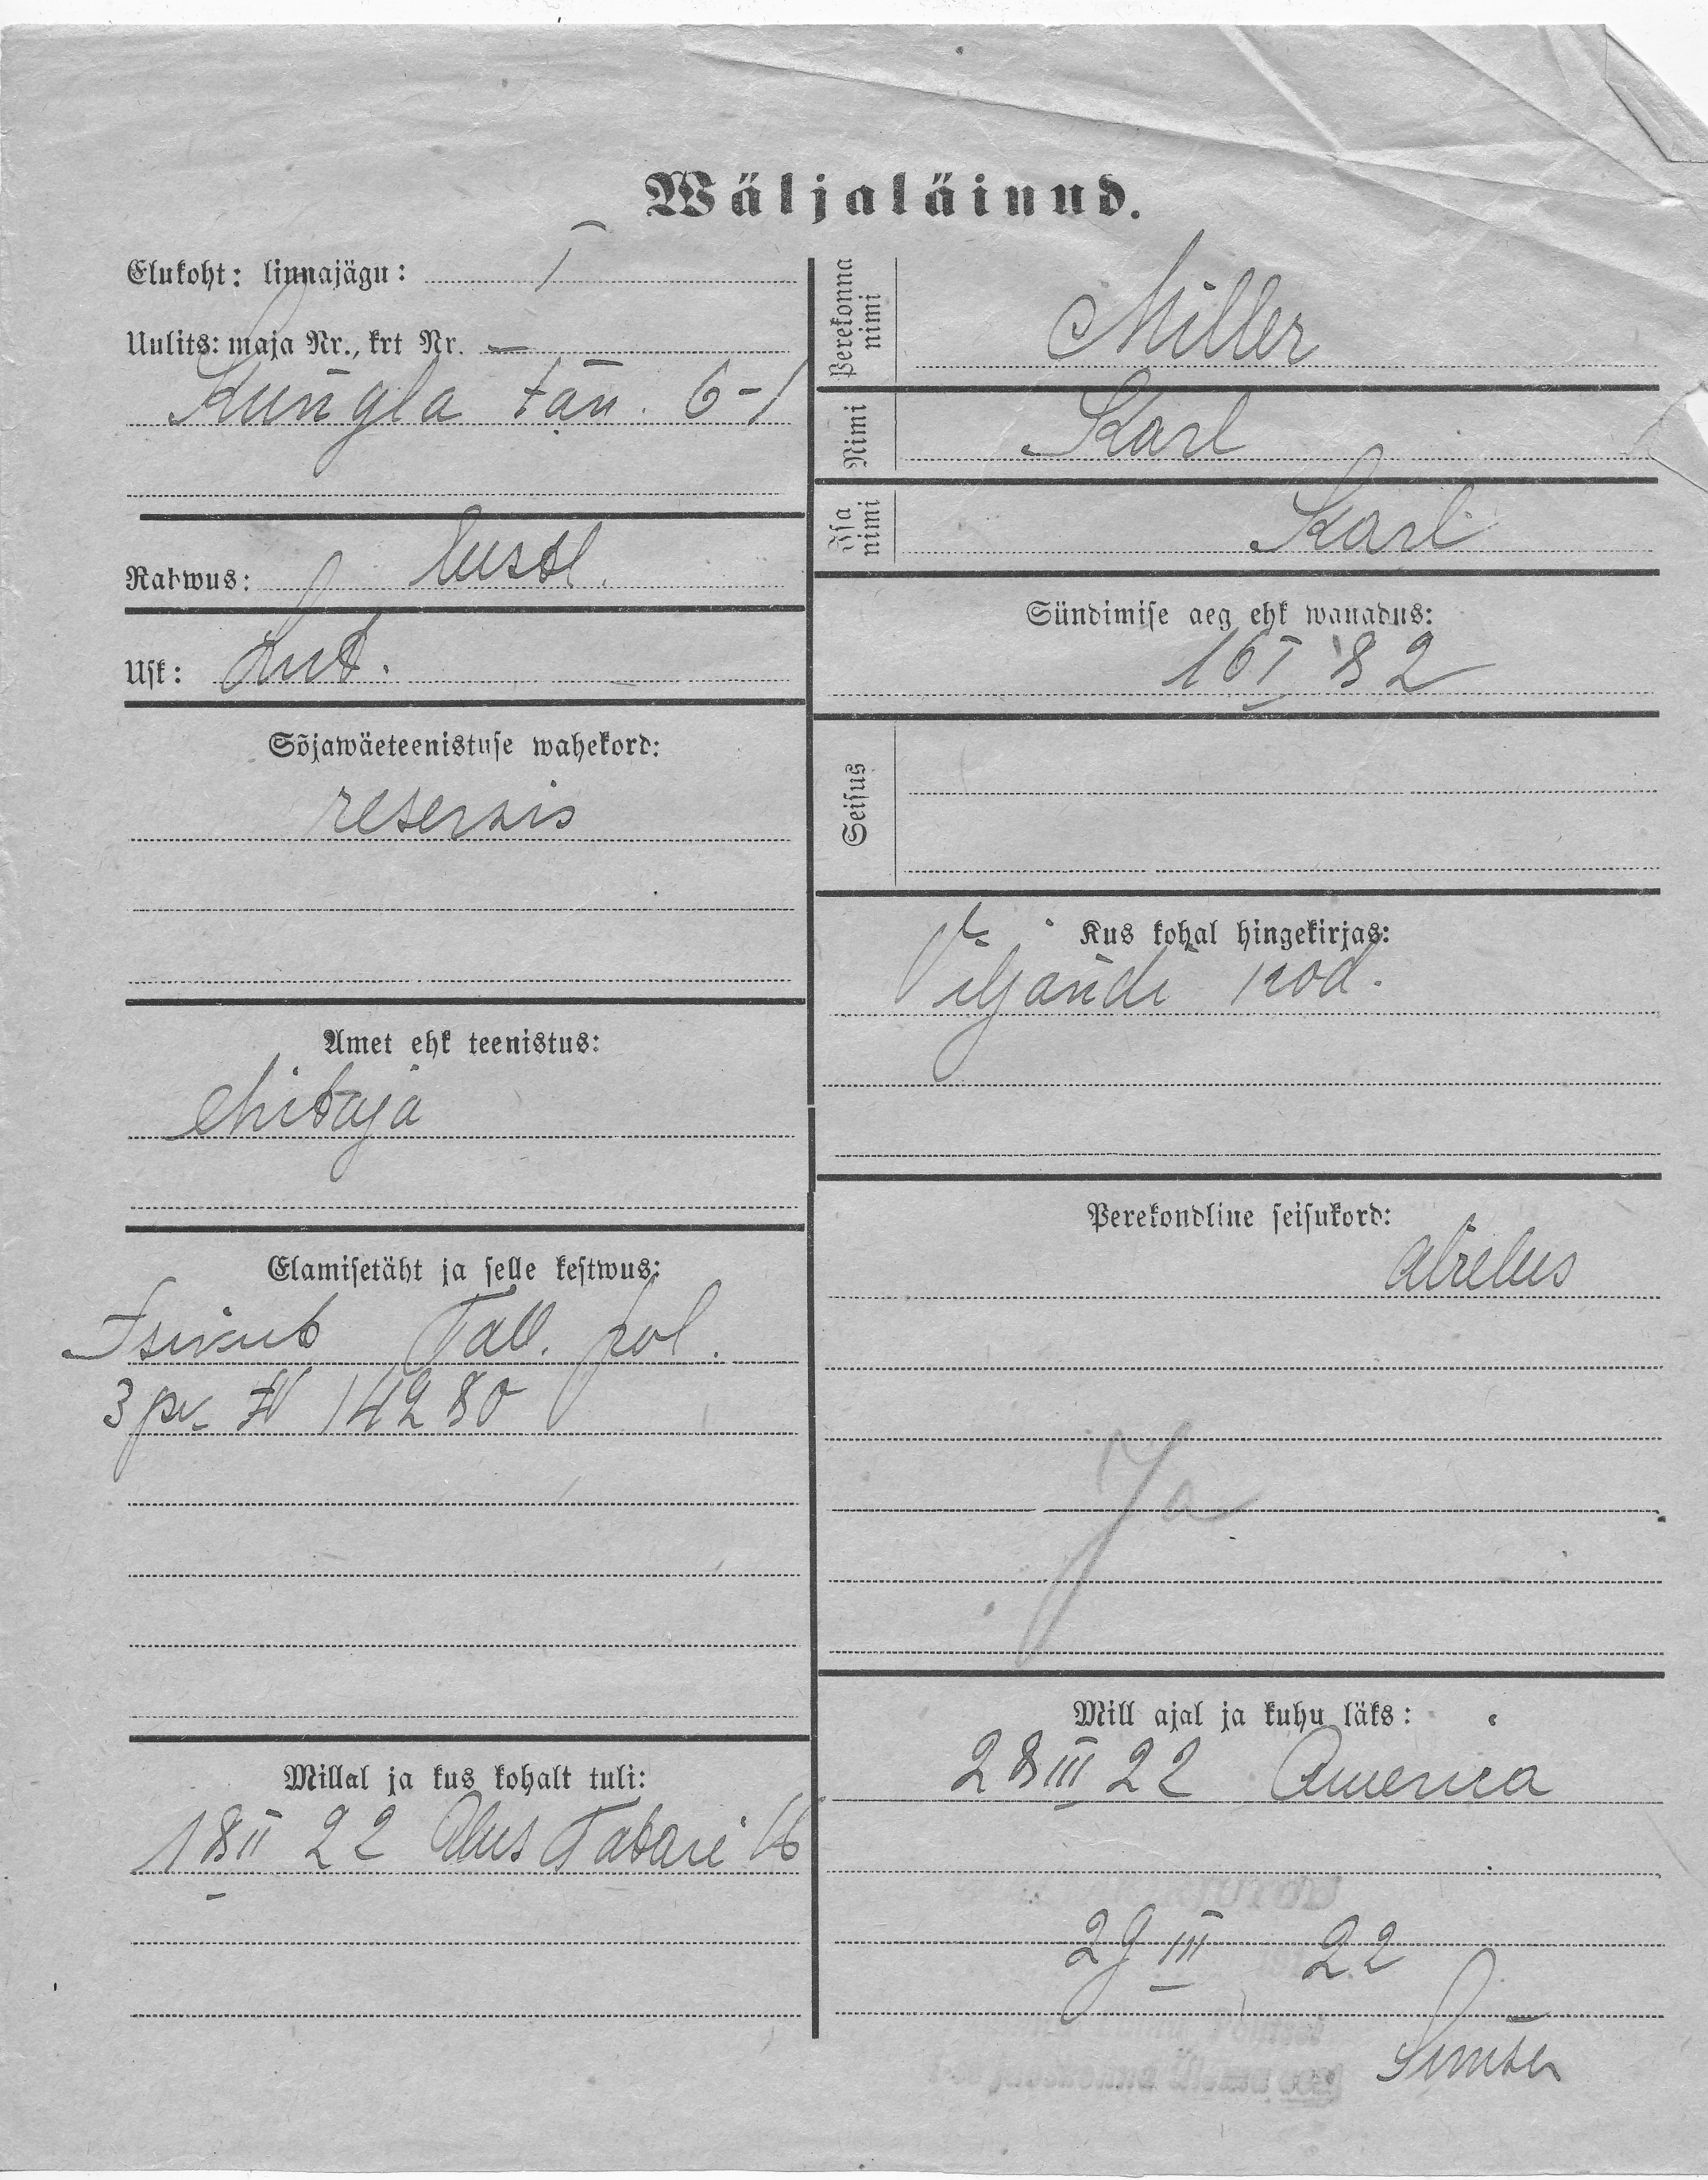 Wäljaläinud.
Elukoht: linnajägu: I
Uulits: maja Nr., krt Nr. —
Kungla tän. 6-1
Rahwus: Eestl.
Usk: Lut.
Sõjawäeteenistuse wahekord:
reservis
Amet ehk teenistus:
ehitaja
Elamisetäht ja selle kestwus:
Isikut Tall. pol.
3 pr. № 14280
Millal ja kus kohalt tuli:
18 II 22 Tatari
Perekonna nimi Miller
Nimi Karl
Isa nimi Karl
Sündimise aeg ehk wanadus:
16 I '82
Seisus
Kus kohal hingekirjas:
Viljandi kod.
Perekondline seisukord:
abielus
Ja
Mill ajal ja kuhu läks:
28 III 22 America
29 III 22